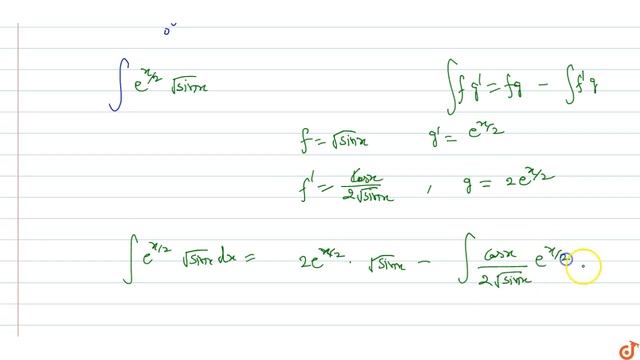 ∫ e^{x/2} √sinx    ∫ f g' = fg − ∫ f' g
f = √sinx    g' = e^{x/2}
f' = cosx / 2√sinx ,    g = 2e^{x/2}
∫ e^{x/2} √sinx dx = 2e^{x/2} · √sinx − ∫ cosx / 2√sinx e^{x/2} .